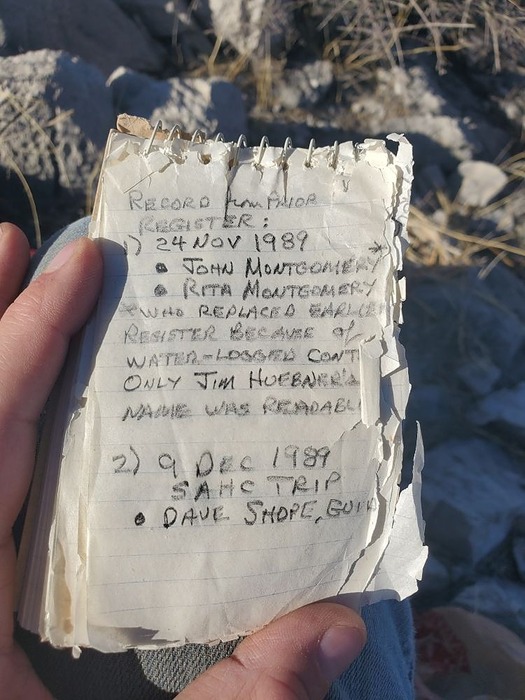 RECORD from PRIOR
REGISTER:
1) 24 NOV 1989
• JOHN MONTGOMERY
• RITA MONTGOMERY
*WHO REPLACED EARLIE
REGISTER BECAUSE of
WATER-LOGGED CONT
ONLY JIM HUEBNER'S
NAME WAS READABL
2) 9 DEC 1989
SAHC TRIP
• DAVE SHOPE, GUI